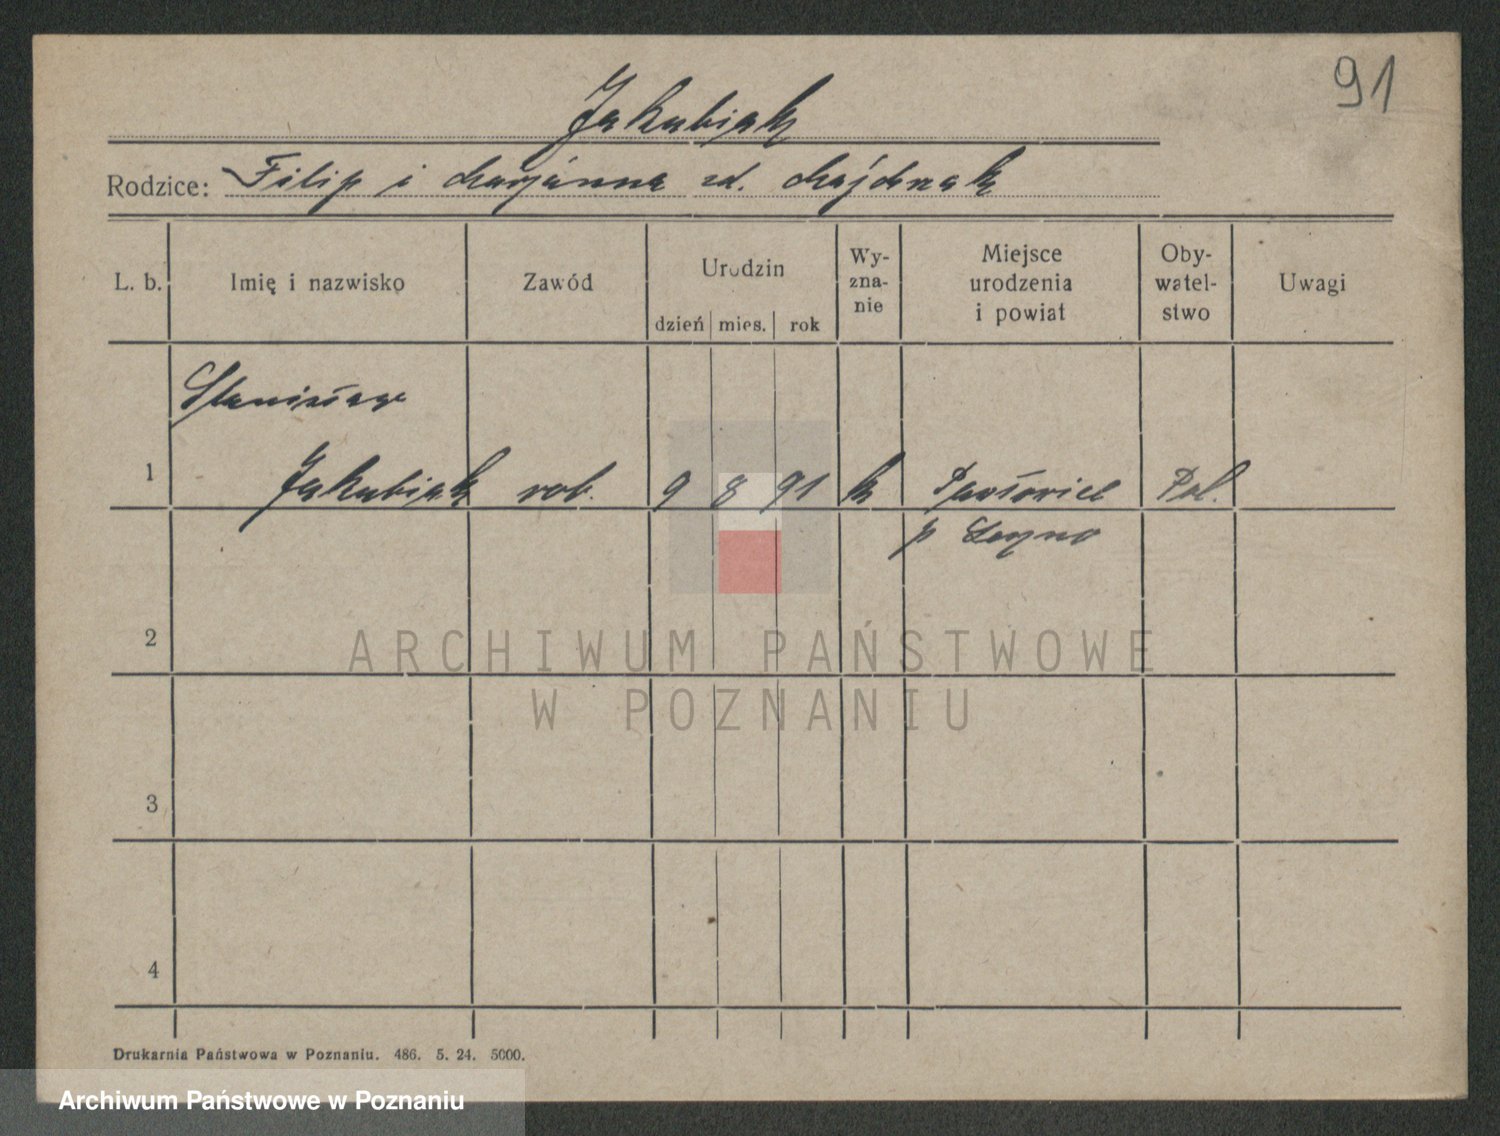 91
Jakubiak
Rodzice: Filip i Marjanna zd. Majchrzak
L. b. Imię i nazwisko Zawód Urodzin dzień mies. rok Wy-zna-nie Miejsce urodzenia i powiat Oby-watel-stwo Uwagi
Stanisław
1 Jakubiak rob. 9 8 91 k Pawłowice Pol.
p
2
ARCHIWUM PAŃSTWOWE
W POZNANIU
3
4
Drukarnia Państwowa w Poznaniu. 486. 5. 24. 5000.
Archiwum Państwowe w Poznaniu